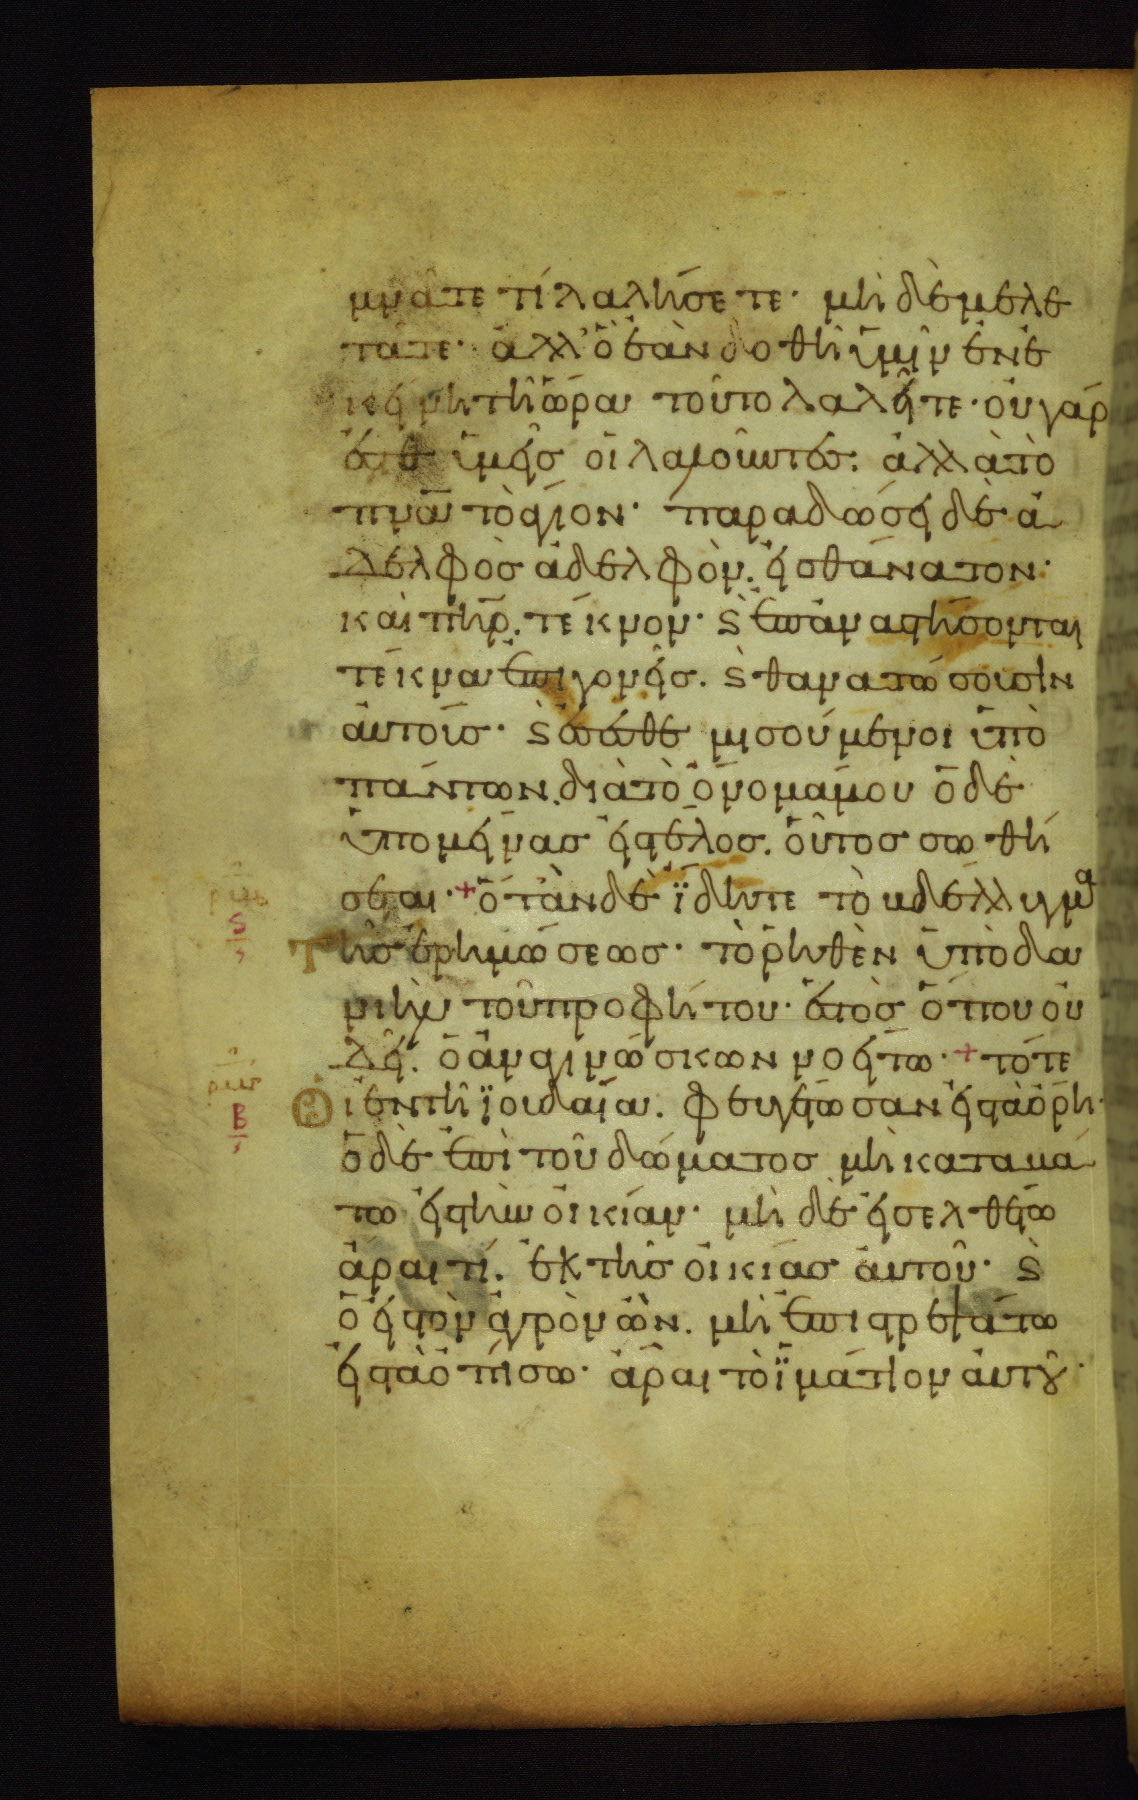 μνᾶτε τί λαλήσετε· μὴ δὲ μελε
τᾶτε· ἀλλ' ὃ ἐὰν δοθῆ ὑμῖν ἐν ἐ
κείνη τῆ ὥρα τοῦτο λαλεῖτε· οὐ γάρ
ἐστε ὑμεῖς οἱ λαλοῦντες. ἀλλὰ τὸ
πνᾶ τὸ ἅγιον· παραδώσει δὲ ἀ
δελφὸς ἀδελφὸν. εἰς θάνατον·
καὶ πηρ. τέκνον· ϛ̀ ἐπαναστήσονται
τέκνα ἐπι γονεῖς. ϛ̀ θανατώσουσιν
αὐτοὺς· ϛ̀ ἔσεσθε μισούμενοι ὑπὸ
πάντων. διὰ τὸ ὄνομά μου ὁ δὲ
ὑπομείνας εἰς τέλος. οὗτος σωθή
σεται· + ὅτὰν δὲ ἴδητε τὸ βδέλλυγμα
Τῆς ἐρημώσεως· τὸ ῥηθὲν ὑπὸ δα
νιὴλ τοῦ προφήτου· ἐστὸς ὅπου οὐ
δεῖ. ὁ ἀναγινώσκων νοείτω· + τότε
οἱ ἐν τῆ ἰουδαία. φευγέτωσαν εἰς τὰ ὄρη·
ὁ δὲ ἐπὶ τοῦ δώματος μὴ καταβά
τω εἰς τὴν οἰκίαν· μὴ δὲ εἰσελθέτω
ἆραι τί. ἐκ τῆς οἰκίας αὐτοῦ· ϛ̀
ὁ εἰς τὸν ἀγρὸν ὢν. μὴ ἐπιστρεψάτω
εἰς τὰ ὀπίσω· ἆραι τὸ ἱμάτιον αὐτοῦ·
ρμβ
ϛ
ρμγ
β